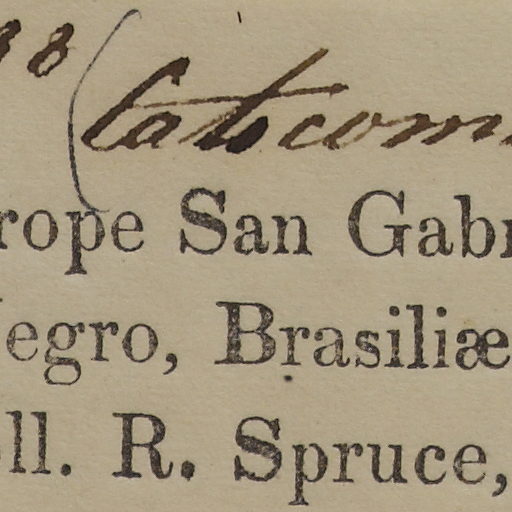 38 (Catocom
rope San Gabr
Negro, Brasiliæ
ll. R. Spruce,